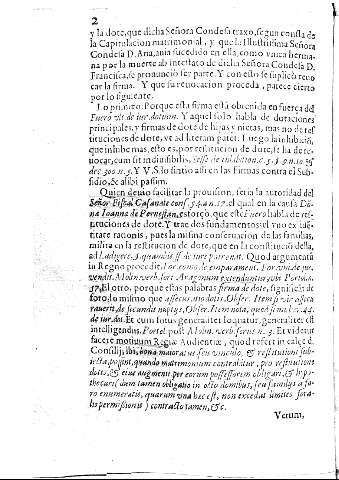 2
y la dote, que dicha Señora Condesa traxo, segun consta de
la Capitulacion matrimonial, y que la Illustrissima Señora
Condesa D. Ana, auia sucedido en ella, como vnica herma-
na por la muerte ab intestato de dicha Señora Condesa D.
Francisca, se pronunciò ser parte. Y con esto se suplicò reuo-
car la firma. Y que su reuocacion proceda, parece cierto
por lo siguiente.
Lo primero: Porque esta firma està obtenida en fuerça del
Fuero vlt. de iur. dotium. Y aquel solo habla de dotaciones
principales, y firmas de dote de hijas y nietas, mas no de res-
tituciones de dote, vt ad literam patet. Luego la inhibiciõ,
que inhibe mas, esto es, por restitucion de dote, se ha de re-
uocar, cum sit indiuisibilis, Sesse de inhibition. c. 5. §. 9. n. 10. &
dec. 300. n. 5. Y V. S. lo sintio assi en las Firmas contra el Sub-
sidio, & alibi passim.
Quien deuio facilitar la prouision, seria la autoridad del
Señor Fiscal Casanate conf. 54. à n. 17. el qual en la causa Do-
ña Ioanna de Pernestan, esforçò, que este Fuero habla de res-
tituciones de dote. Y trae dos fundamentos: el vno ex iden-
titate rationis, pues la misma conseruacion de las familias,
milita en la restitucion de dote, que en la constitució della,
ad L. adigere. §. quamuis ff. de iure patronat. Quod argumentũ
in Regno procedit
37. El otro, porque estas palabras firma de dote, significã efe-
toto, lo mismo que
de iur. dot. Et cum forus generaliter loquatur, generaliter est
intelligendus. Portol. post Molin. verb. forus n. 3. Et videtur
facere motiuum Regiæ Audientiæ, quod refert in calce d.
Consilij, ibi, bona maioratus seu vinculo, & restitutioni sub-
iecta, possint, quando matrimonium contrabitur, pro restitutione
dotis, & eius augmenti per eorum possessorem obligari, & hypo-
thecari: dum tamen obligatio in casto domibus, seu familys à fo-
ro enumeratis, quarum vna hæc est, non excedat limites fora-
lis permissionis; contracto tamen, & c.
Verum,